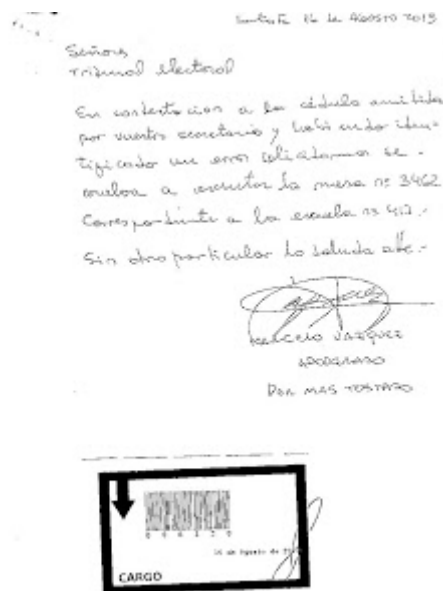 Santa Fe 16 de Agosto 2019
Señores
Tribunal electoral
En contestacion a la cédula emitida
por vuestra secretaria y habiendo iden-
tificado un error solicitamos se
vuelva a escrutar la mesa nº 3462
Correspondiente a la escuela nº 417.-
Sin otro particular lo saluda atte.-
MARCELO VAZQUEZ
APODERADO
POR MAS TOSTADO
16 de Agosto de
CARGO